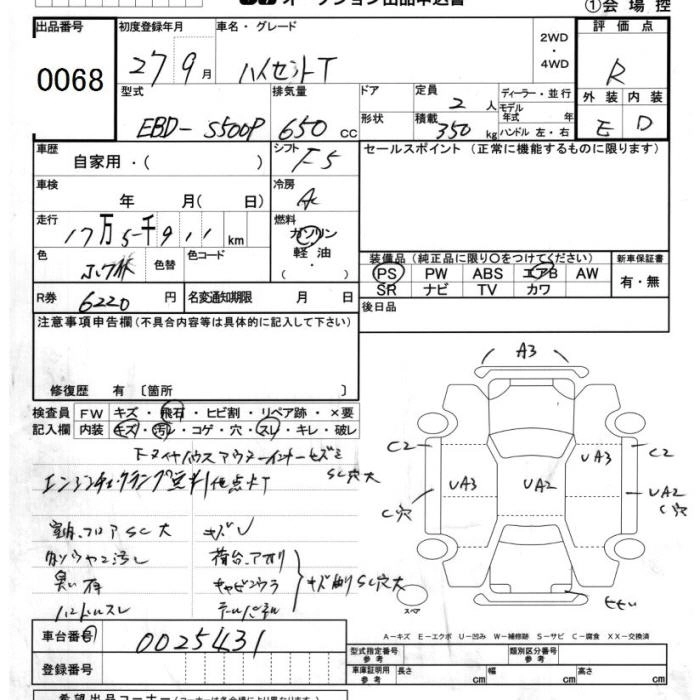 オークション出品申込書
①会場控
出品番号
0068
初度登録年月
27 9月
車名・グレード
ハイゼットT
2WD
・
4WD
評価点
R
外装 内装
E D
型式
EBD-S500P
排気量
650 cc
ドア
形状
定員
2 人
積載
350 kg
ディーラー・並行
モデル年式 年
ハンドル 左・右
車歴
自家用・( )
シフト
F5
セールスポイント (正常に機能するものに限ります)
車検
年 月( 日)
冷房
AC
走行
17万5千911 km
燃料
ガソリン
軽油
( ・ )
色
色替
色コード
装備品 (純正品に限り○をつけてください)
PS PW ABS エアB AW
SR ナビ TV カワ
新車保証書
有・無
R券
6220 円
名変通知期限 月 日
後日品
注意事項申告欄 (不具合内容等は具体的に記入して下さい)
修復歴 有 〔箇所 〕
検査員
記入欄
FW キズ・飛石・ヒビ割・リペア跡・×要
内装 キズ・汚レ・コゲ・穴・スレ・キレ・破レ
エンジンチェックランプ
SC穴大
室内フロアSC大
臭い有
ハンドルスレ
キズ
荷台アオリ
テールパネル
SC穴大
A3
C2
UA3
C穴
UA2
UA3
C2
UA2
C穴
スペア
A-キズ E-エクボ U-凹み W-補修跡 S-サビ C-腐食 XX-交換済
車台番号
0025431
登録番号
型式指定番号
参考
類別区分番号
参考
車庫証明用
参考
長さ cm
幅 cm
高さ cm
希望出品コーナー